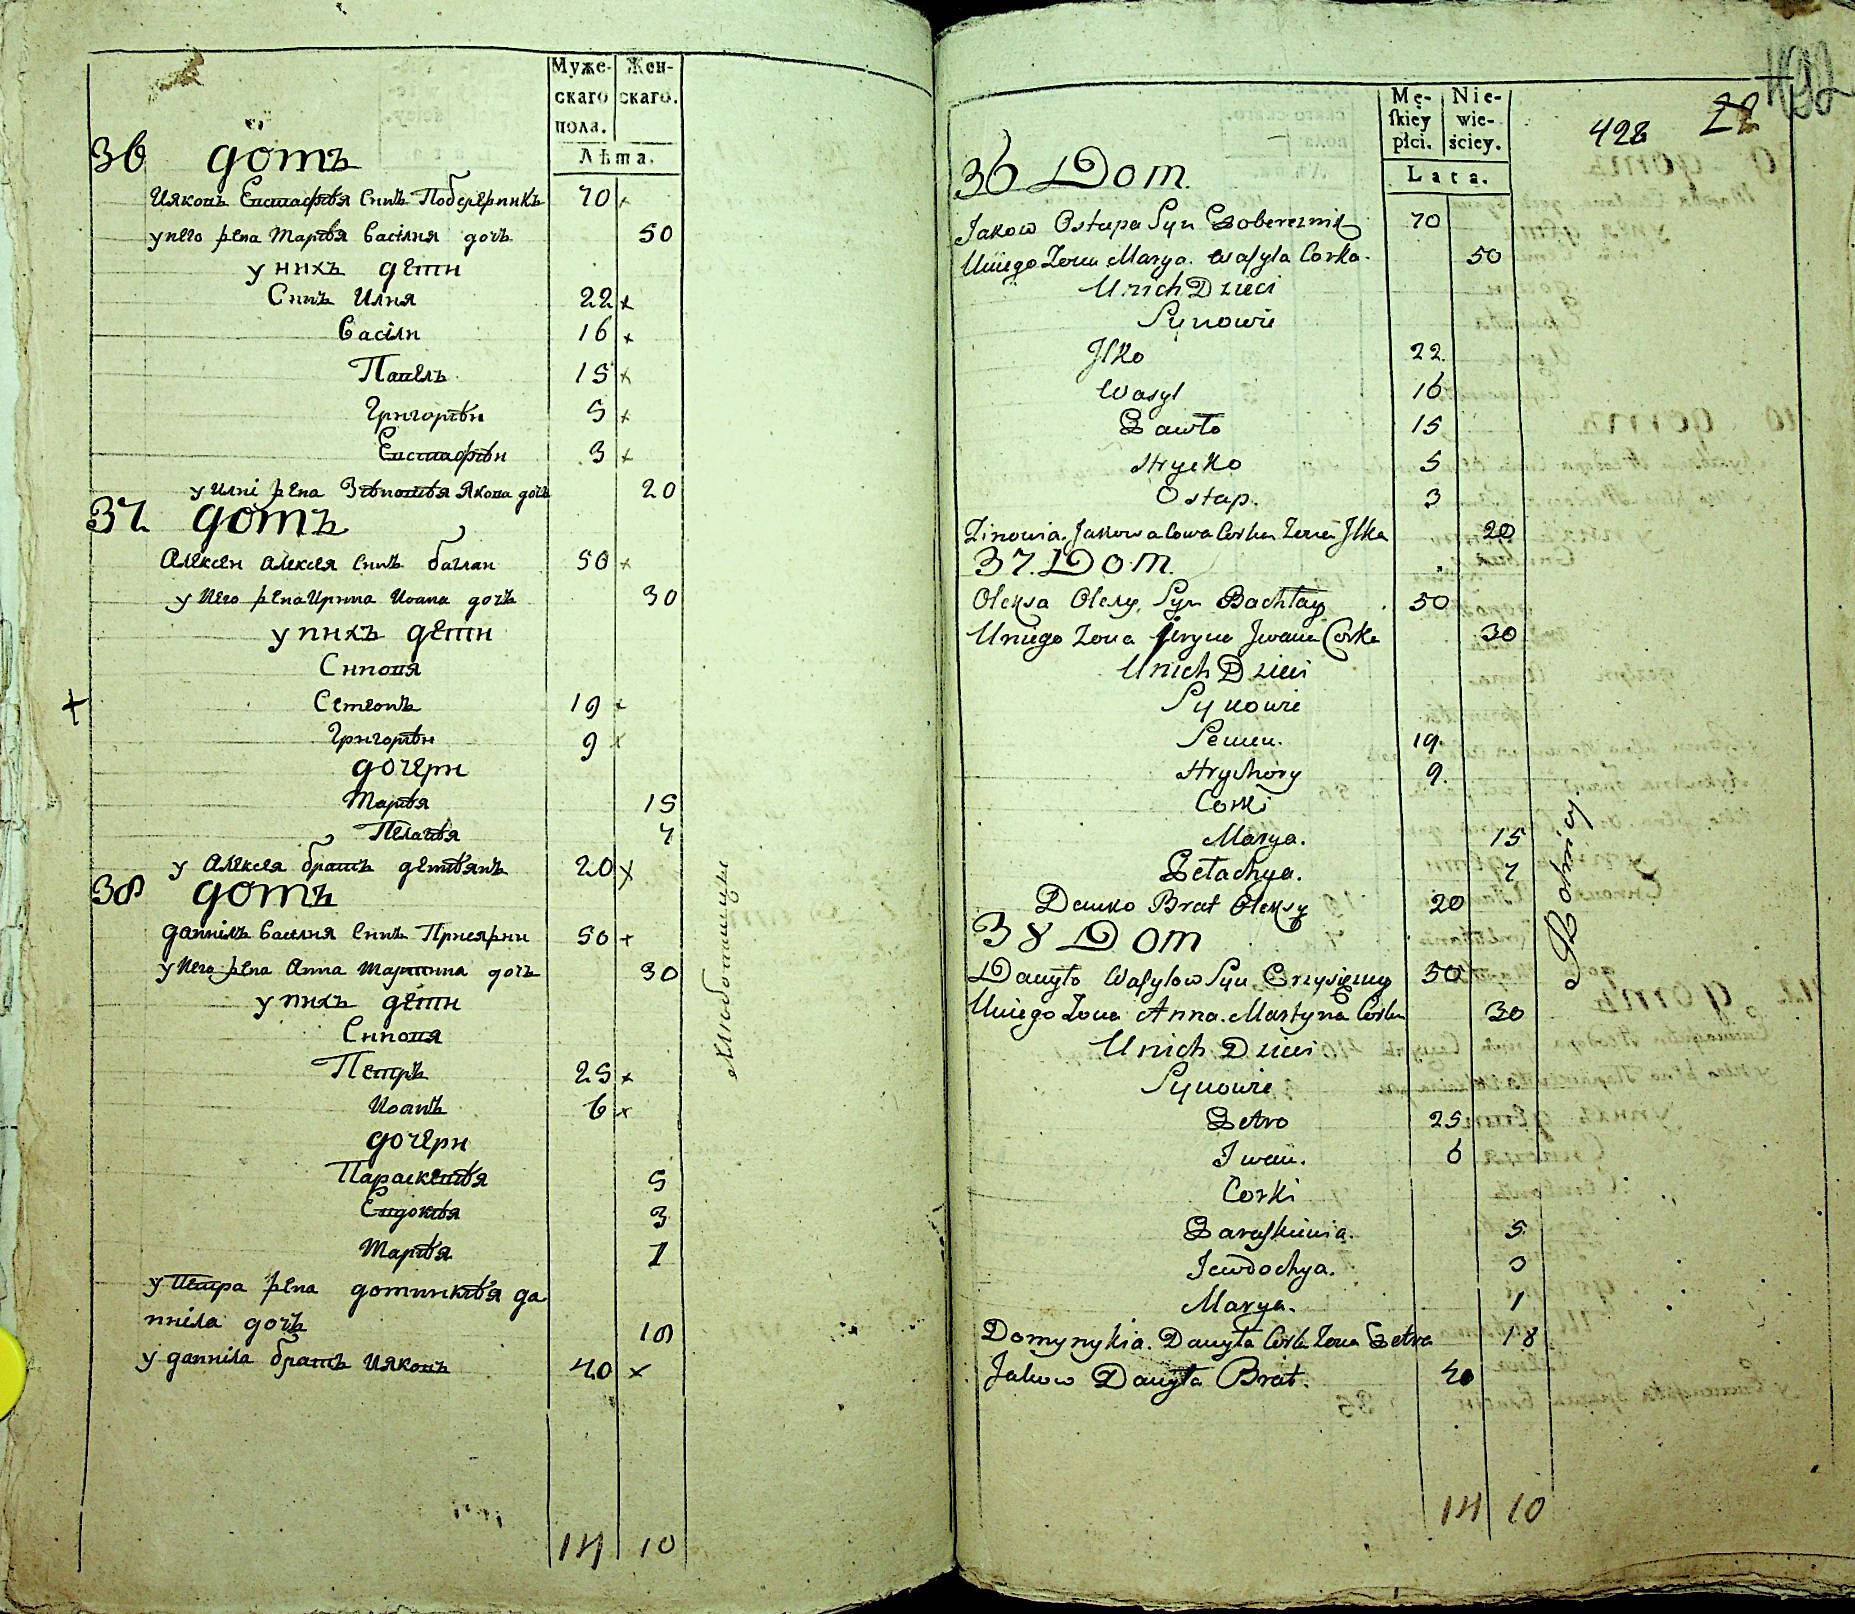 Муже-
скаго
пола.
Жен-
скаго.
Лѣта.
36 домъ
Ияковъ Евстафѣя Синъ Побережникъ 70
у него жена Марѣя Василия дочъ 50
у нихъ дети
Синъ Илия 22
Васіли 16
Павелъ 15
Григорѣи 5
Евстафѣи 3
у Илиі жена Зѣновѣя Якова дочъ 20
37 домъ
Алексеи Алексея Синъ Баглаи 50
у Него жена Ирина Иоана дочъ 30
у нихъ дети
Синовя
Семеонъ 19
Григорѣи 9
дочери
Марѣя 15
Пелагѣя 7
у Алексея братъ демѣянъ 20
38 домъ
Данніилъ Василия Синъ Присяжни 50
у Него жена Анна Мартина дочъ 30
у нихъ дети
Синовя
Петръ 25
Иоанъ 6
дочери
Параскевѣя 5
Евдокѣя 3
Марѣя 1
у Петра жена доминикѣя да
нніла дочъ 18
у данніла братъ Ияковъ 40
14 10
Mę-
skiey
płci.
Nie-
wie-
ściey.
Lata.
428
22
36 Dom.
Jakow Ostapa Syn Pobereznik 70
U niego Zona Marya. Wasyla Corka. 50
U nich Dzieci
Synowie
Jlko 22.
Wasyl 16
Pawło 15
Hryćko 5
Ostap. 3
Zinowia. Jakowa Corka Zona Jlka 20
37. Dom.
Olexa Olexy, Syn Bachłay 50
U niego Zona Jryna Jwana Corka 30
U nich Dzieci
Synowie
Semen. 19.
Hryhory 9.
Corki
Marya. 15
Pełachya. 7
Demko Brat Olexy 20
38 Dom
Danyło Wasylow Syn Przysiężny 50
U niego Zona Anna. Martyna Corka 30
U nich Dzieci
Synowie
Petro 25
Jwan. 6
Corki
Paraskiewia. 5
Jewdochya. 3
Marya. 1
Domynykia. Danyła Corka Zona Petra 18
Jakow Danyła Brat. 40
Rolnicy.
14 10